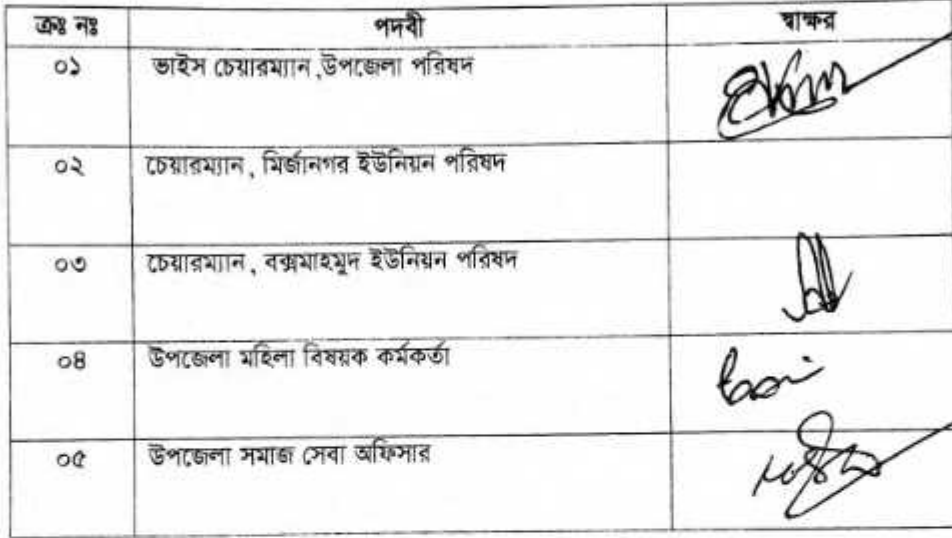 ক্রঃ নঃ পদবী স্বাক্ষর
০১ ভাইস চেয়ারম্যান ,উপজেলা পরিষদ
০২ চেয়ারম্যান , মির্জানগর ইউনিয়ন পরিষদ
০৩ চেয়ারম্যান , বক্সমাহমুদ ইউনিয়ন পরিষদ
০৪ উপজেলা মহিলা বিষয়ক কর্মকর্তা
০৫ উপজেলা সমাজ সেবা অফিসার